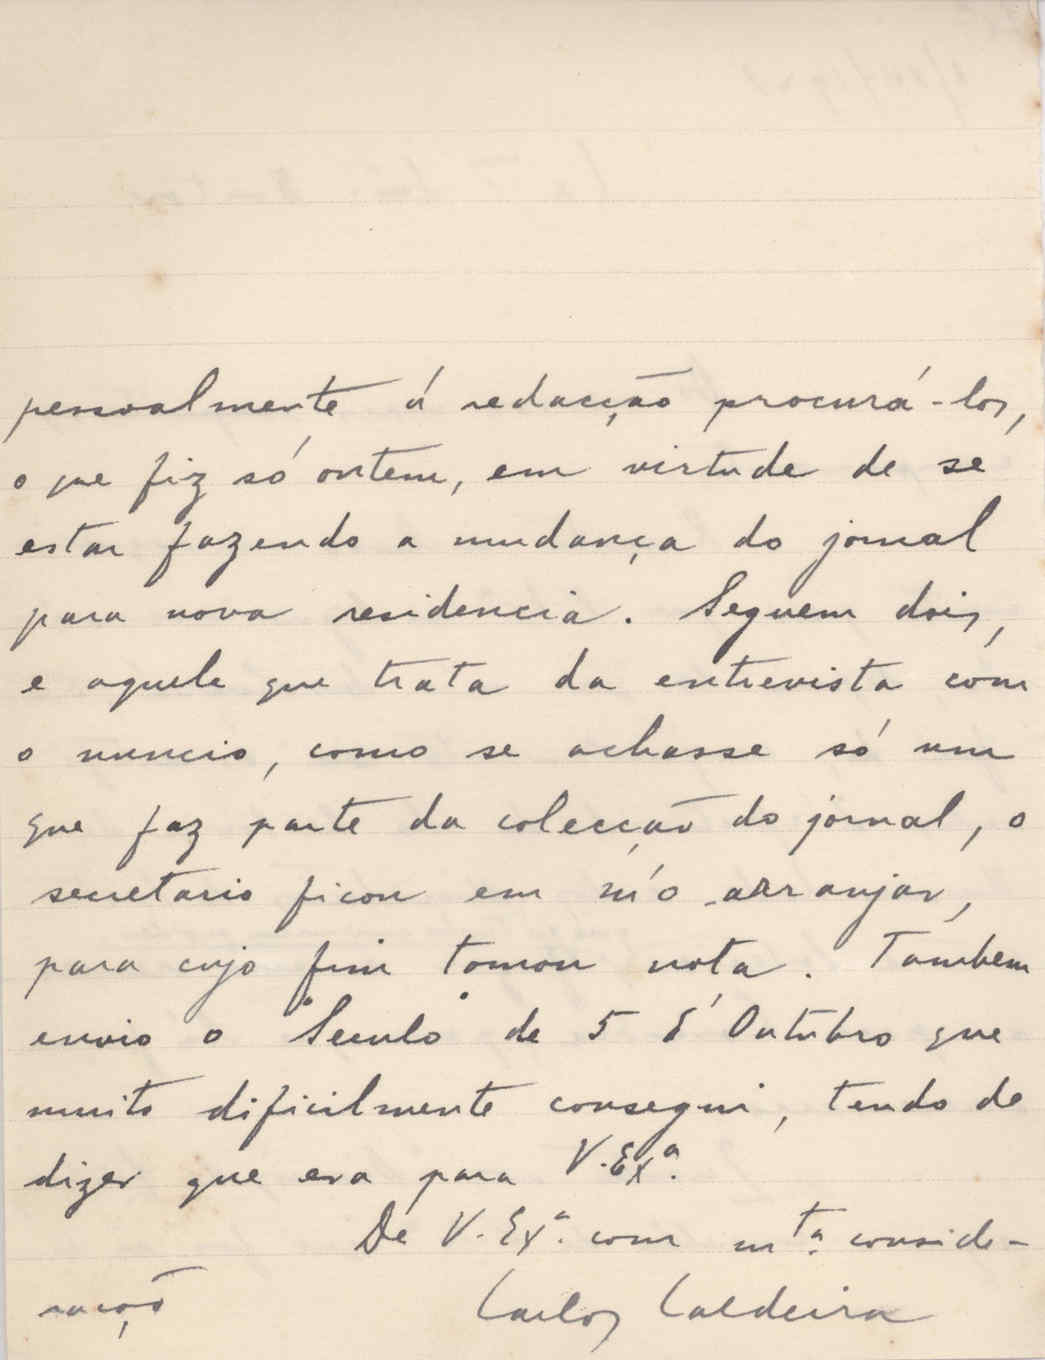 pessoalmente á redacção procurá-los,
o que fiz só ontem, em virtude de se
estar fazendo a mudança do jornal
para nova residencia. Seguem dois,
e aquele que trata da entrevista com
o nuncio, como se achasse só um
que faz parte da colecção do jornal, o
secretario ficou em m'o arranjar,
para cujo fim tomou nota. Tambem
envio o "Seculo" de 5 d'Outubro que
muito dificilmente consegui, tendo de
dizer que era para V. Exª.
De V. Exª. com mtª. conside-
ração
Carlos Caldeira